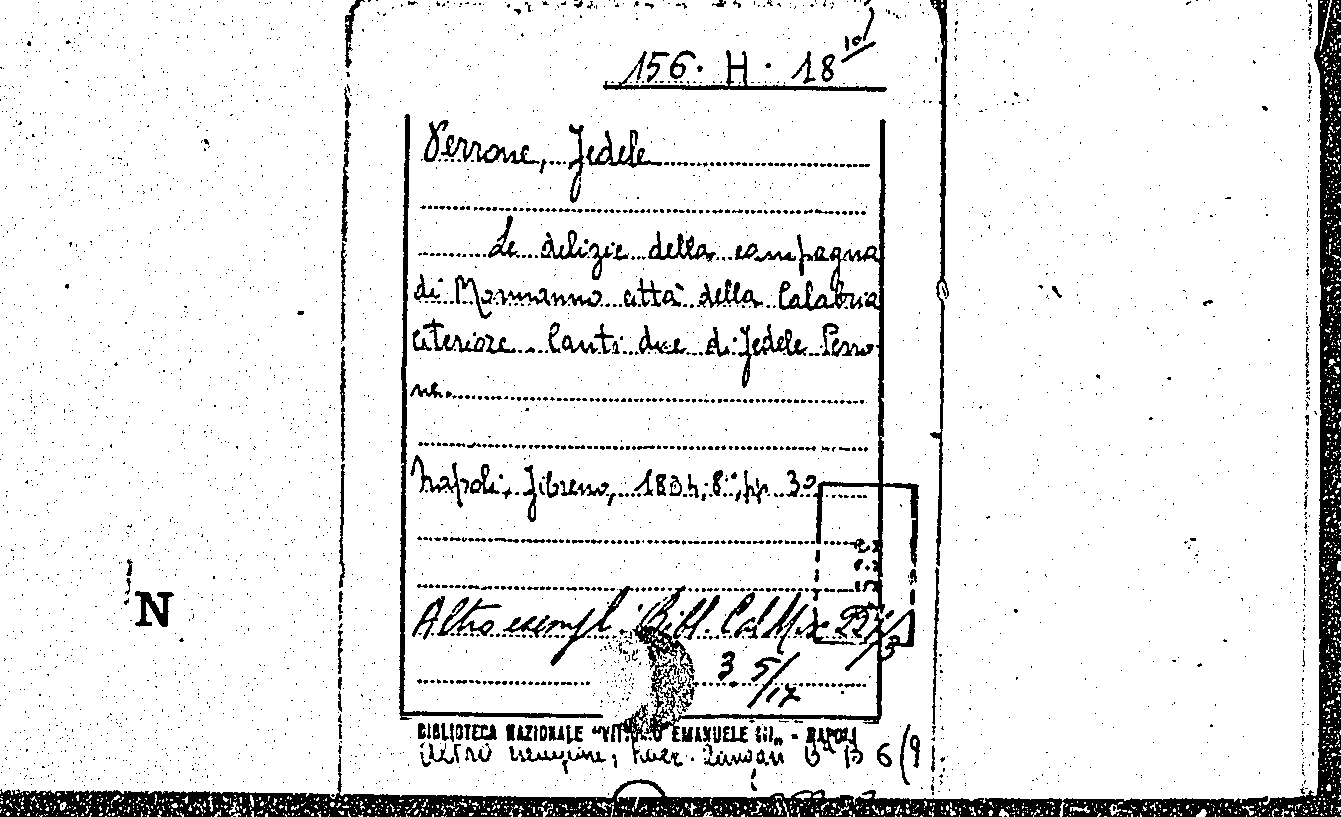 156. H. 18 10/
Perrone, Fedele
Le delizie della campagna
di Mormanno città della Calabria
citeriore. Canti due di Fedele Perro-
ne.
Napoli, Fibreno, 1834, 8°, pp. 30
Altro exempl. Bibl. Cal. Misc. 22/3
3 5/17
N
BIBLIOTECA NAZIONALE "VITTORIO EMANUELE III" - NAPOLI
Altro B 6 (9